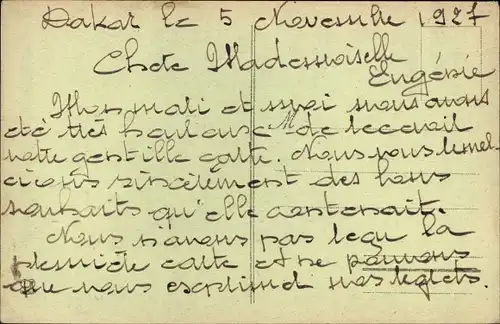 Dakar le 5 Novembre 1927
Chère Mademoiselle
Eugénie
Mon mari et moi nous avons
été très heureux de recevoir
votre gentille carte. Nous vous remer-
cions sincèrement des bons
souhaits qu'elle contenait.
Nous n'avons pas reçu la
première carte et ne pouvons
que vous exprimer nos regrets.